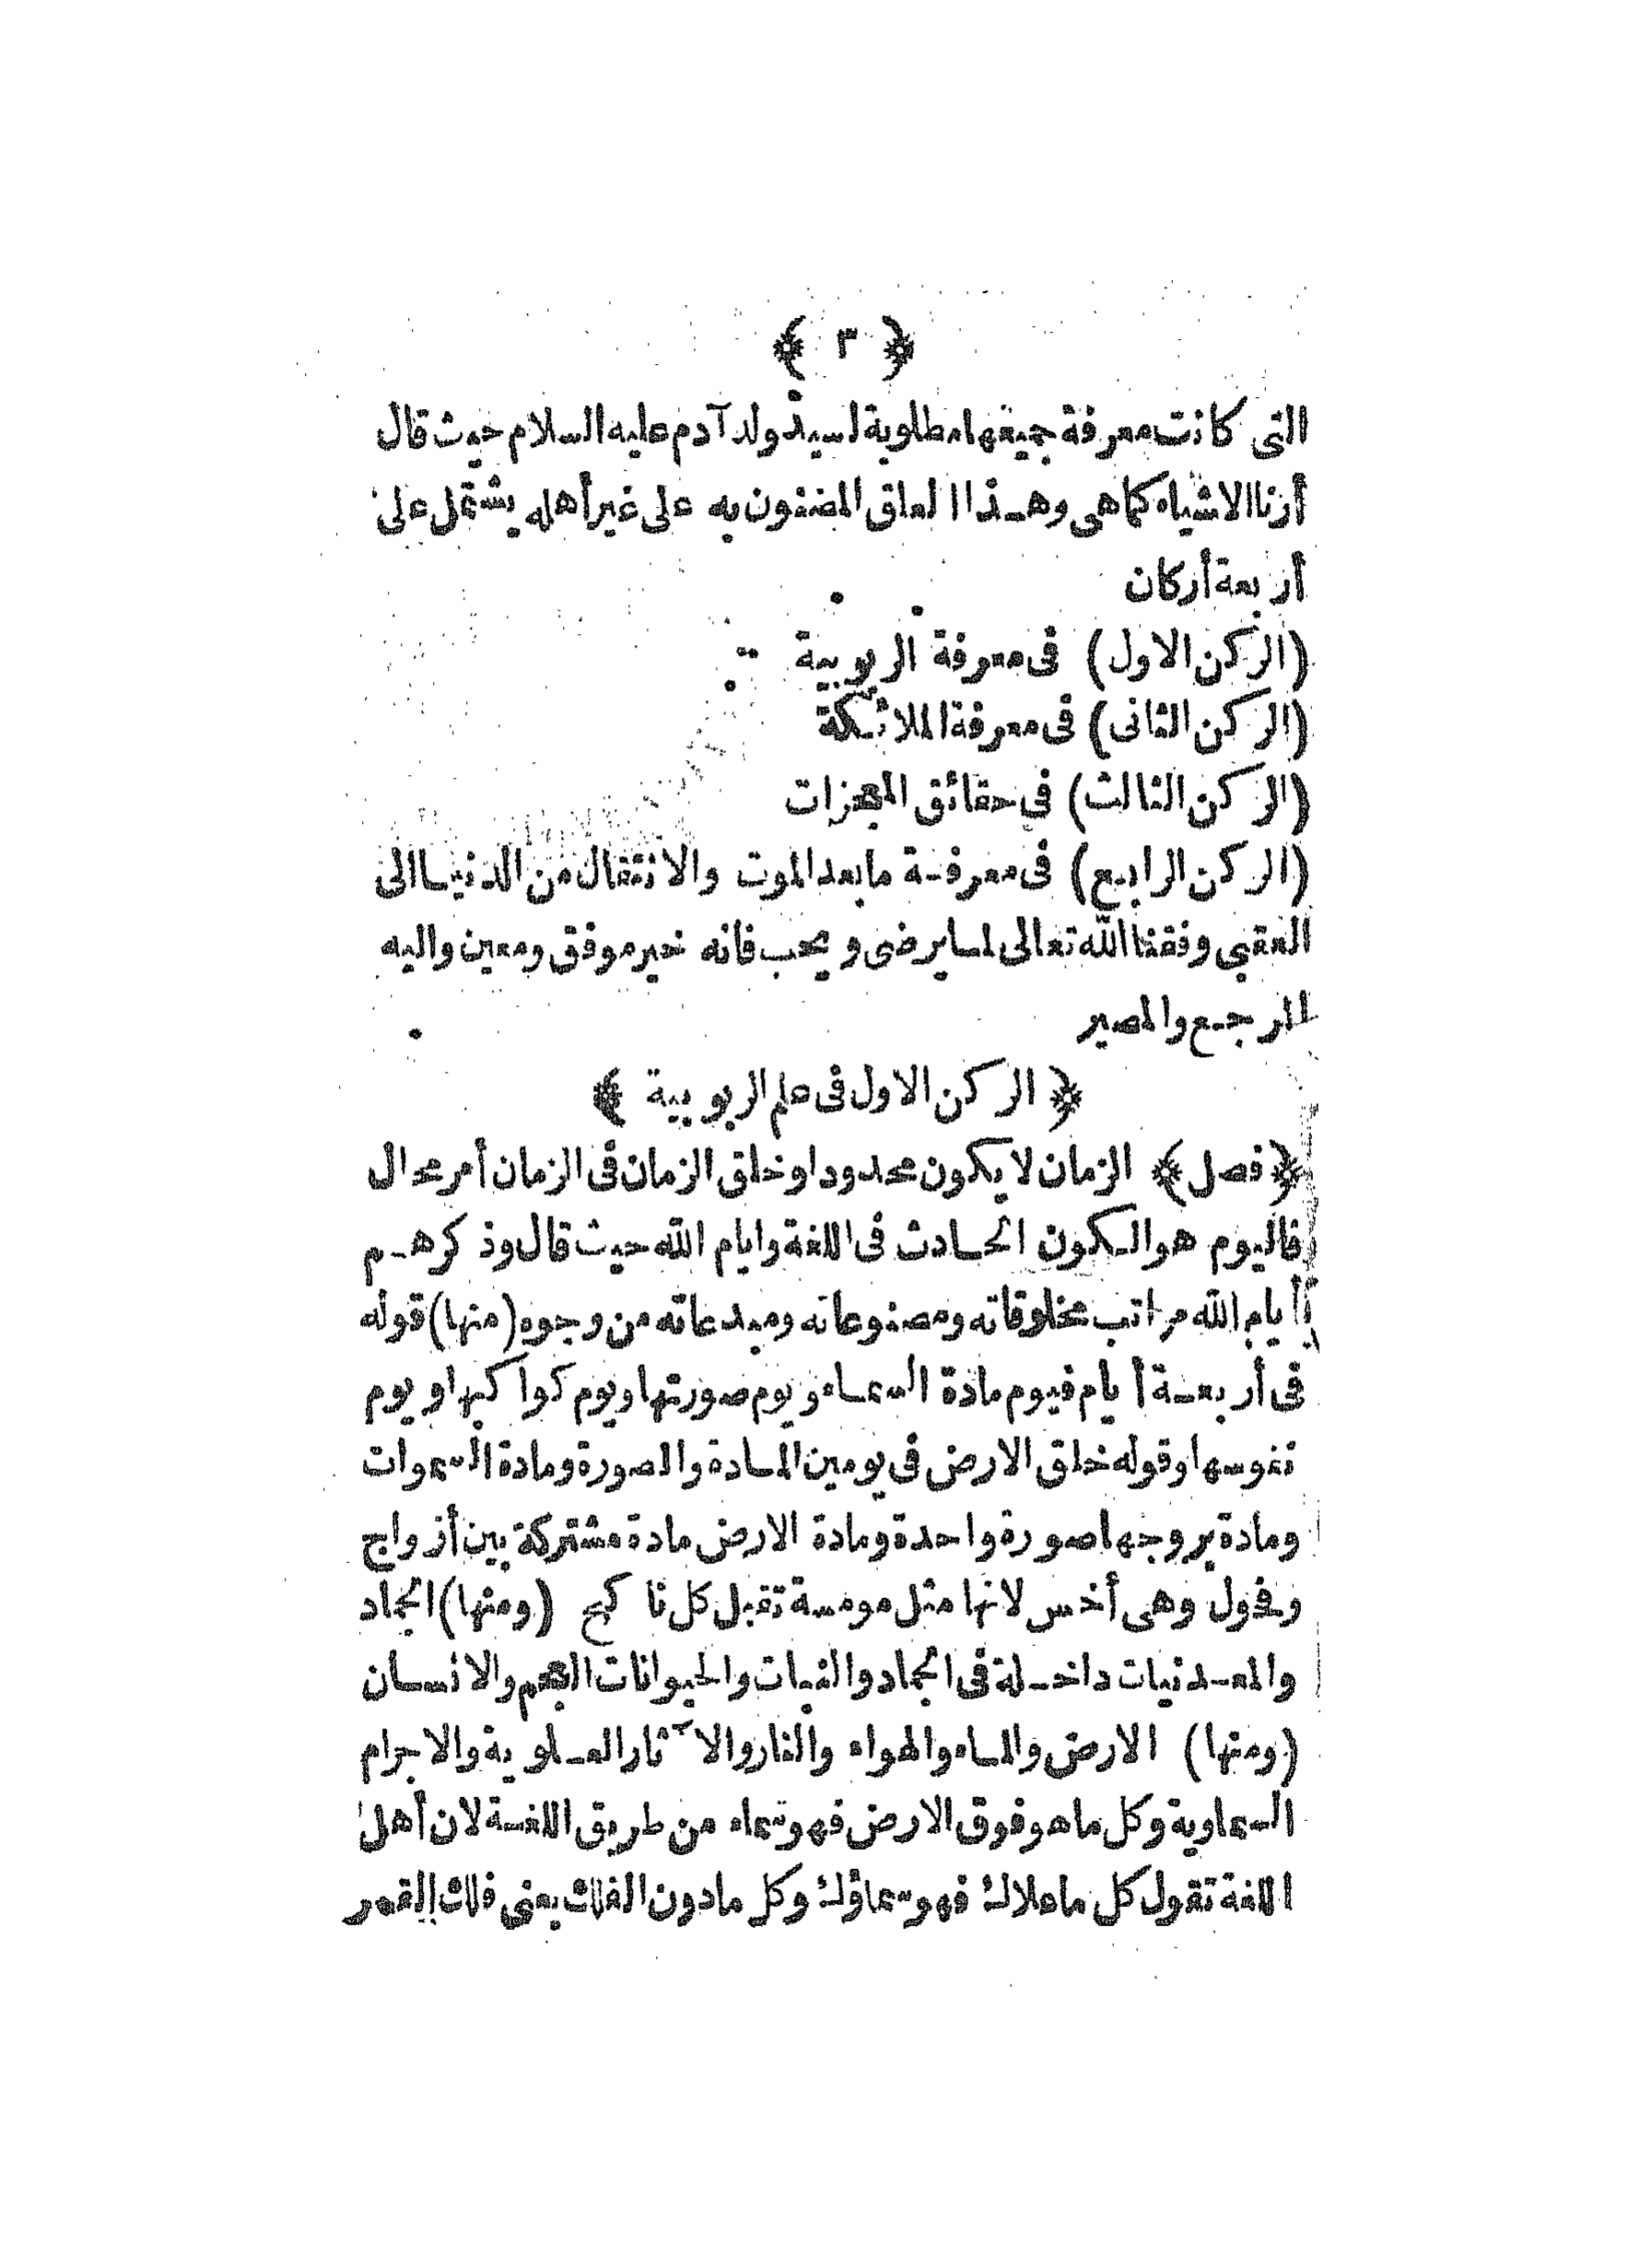 ﴿ ٣ ﴾
التى كانت معرفة جميعها مطلوبة لسيد ولد آدم عليه السلام حيث قال
أرنا الاشياء كماهى وهذا العلق المضنون به على غير أهله يشتمل على
أربعة أركان
(الركن الاول) فى معرفة الربوبية
(الركن الثانى) فى معرفة الملائكة
(الركن الثالث) فى حقائق المعجزات
(الركن الرابع) فى معرفة مابعد الموت والانتقال من الدنيا الى
العقبى وفقنا الله تعالى لما يرضى ويحب فانه خير موفق ومعين واليه
المرجع والمصير
﴿ الركن الاول فى علم الربوبية ﴾
﴿فصل﴾ الزمان لا يكون محدودا وخلق الزمان فى الزمان أمر محال
فاليوم هو الكون الحادث فى اللغة وايام الله حيث قال وذكرهم
بأيام الله مراتب مخلوقاته ومصنوعاته ومبدعاته من وجوه (منها) قوله
فى أربعة أيام فيوم مادة السماء ويوم صورتها ويوم كواكبها ويوم
نفوسها وقوله خلق الارض فى يومين المادة والصورة ومادة السموات
ومادة بروجها صورة واحدة ومادة الارض مادة مشتركة بين أزواج
وفحول وهى أخس لانها مثل مومسة تقبل كل ناكح (ومنها) الجماد
والمعدنيات داخلة فى الجماد والنبات والحيوانات العجم والانسان
(ومنها) الارض والماء والهواء والنار والآثار العلوية والاجرام
السماوية وكل ماهو فوق الارض فهو سماء من طريق اللغة لان أهل
اللغة تقول كل ماعلاك فهو سماؤك وكل مادون الفلك يعنى فلك القمر